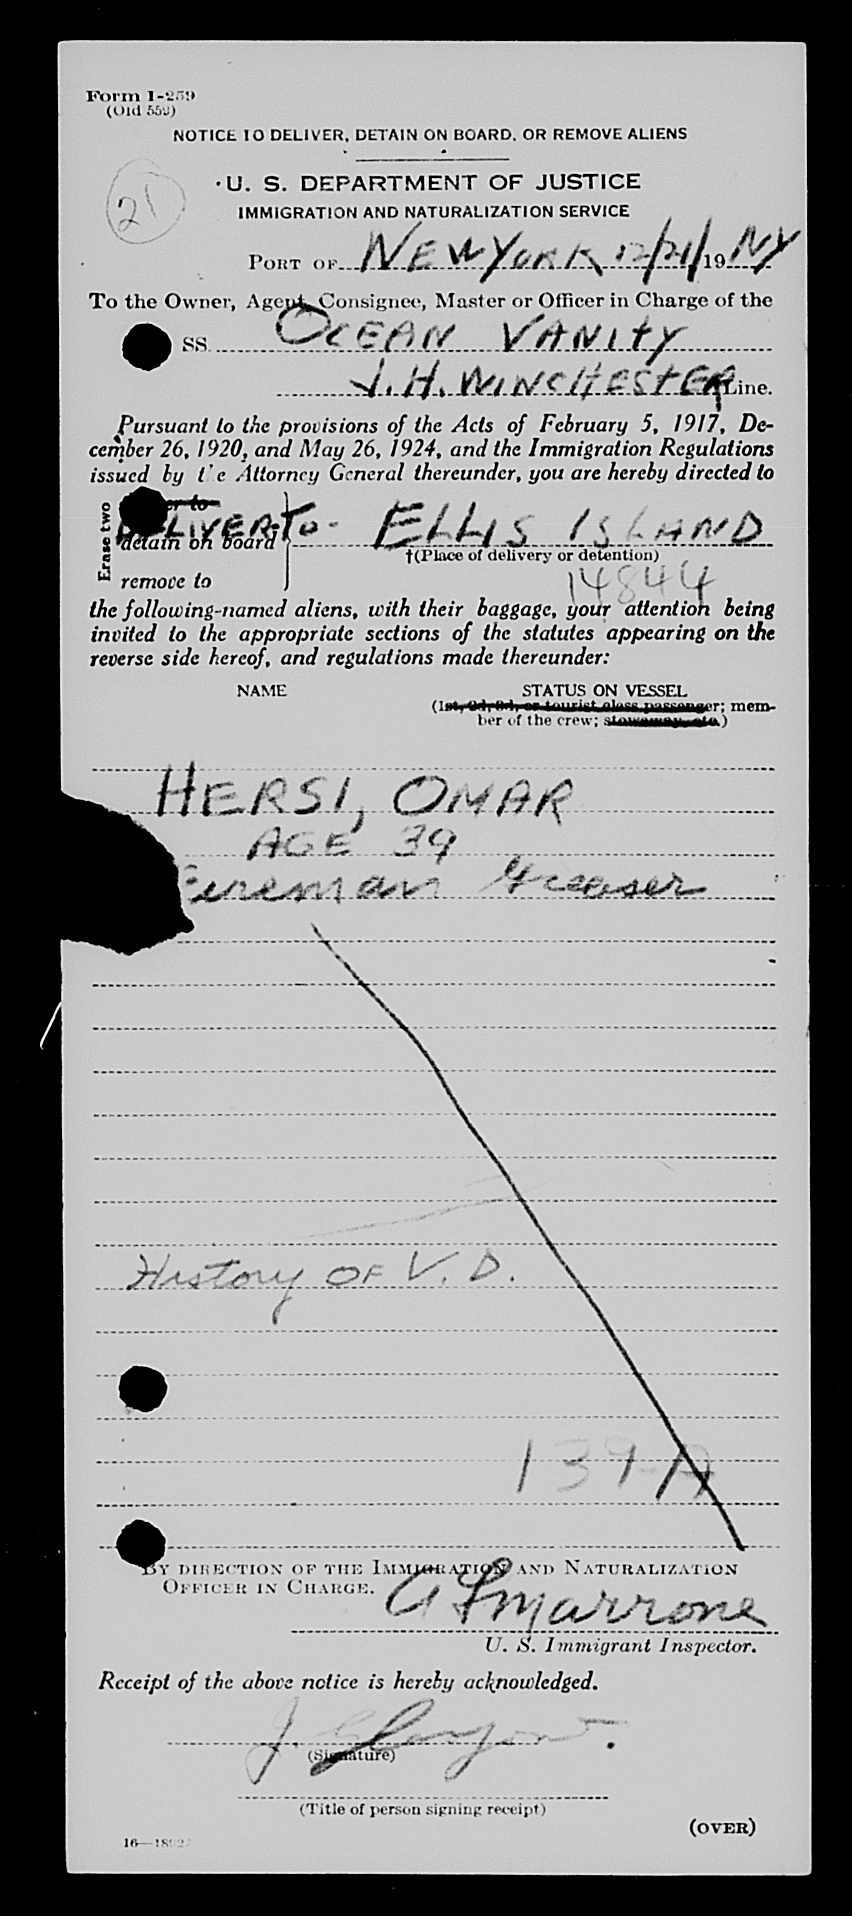 Form I-259
(Old 552)
NOTICE TO DELIVER, DETAIN ON BOARD, OR REMOVE ALIENS
21
U. S. DEPARTMENT OF JUSTICE
IMMIGRATION AND NATURALIZATION SERVICE
PORT OF NEW YORK 12/21/19 NY
To the Owner, Agent, Consignee, Master or Officer in Charge of the
SS. OCEAN VANITY
J. H. WINCHESTER Line.
Pursuant to the provisions of the Acts of February 5, 1917, De-
cember 26, 1920, and May 26, 1924, and the Immigration Regulations
issued by the Attorney General thereunder, you are hereby directed to
Erase two
DELIVER-To- ELLIS ISLAND
detain on board
†(Place of delivery or detention)
remove to
14844
the following-named aliens, with their baggage, your attention being
invited to the appropriate sections of the statutes appearing on the
reverse side hereof, and regulations made thereunder:
NAME STATUS ON VESSEL
(1st, 2d, 3d, or tourist class passenger; mem-
ber of the crew; stowaway, etc.)
HERSI, OMAR
AGE 39
Fireman Greaser
History OF V. D.
139-A
BY DIRECTION OF THE IMMIGRATION AND NATURALIZATION
OFFICER IN CHARGE.
U. S. Immigrant Inspector.
Receipt of the above notice is hereby acknowledged.
J.
(Signature)
(Title of person signing receipt)
(OVER)